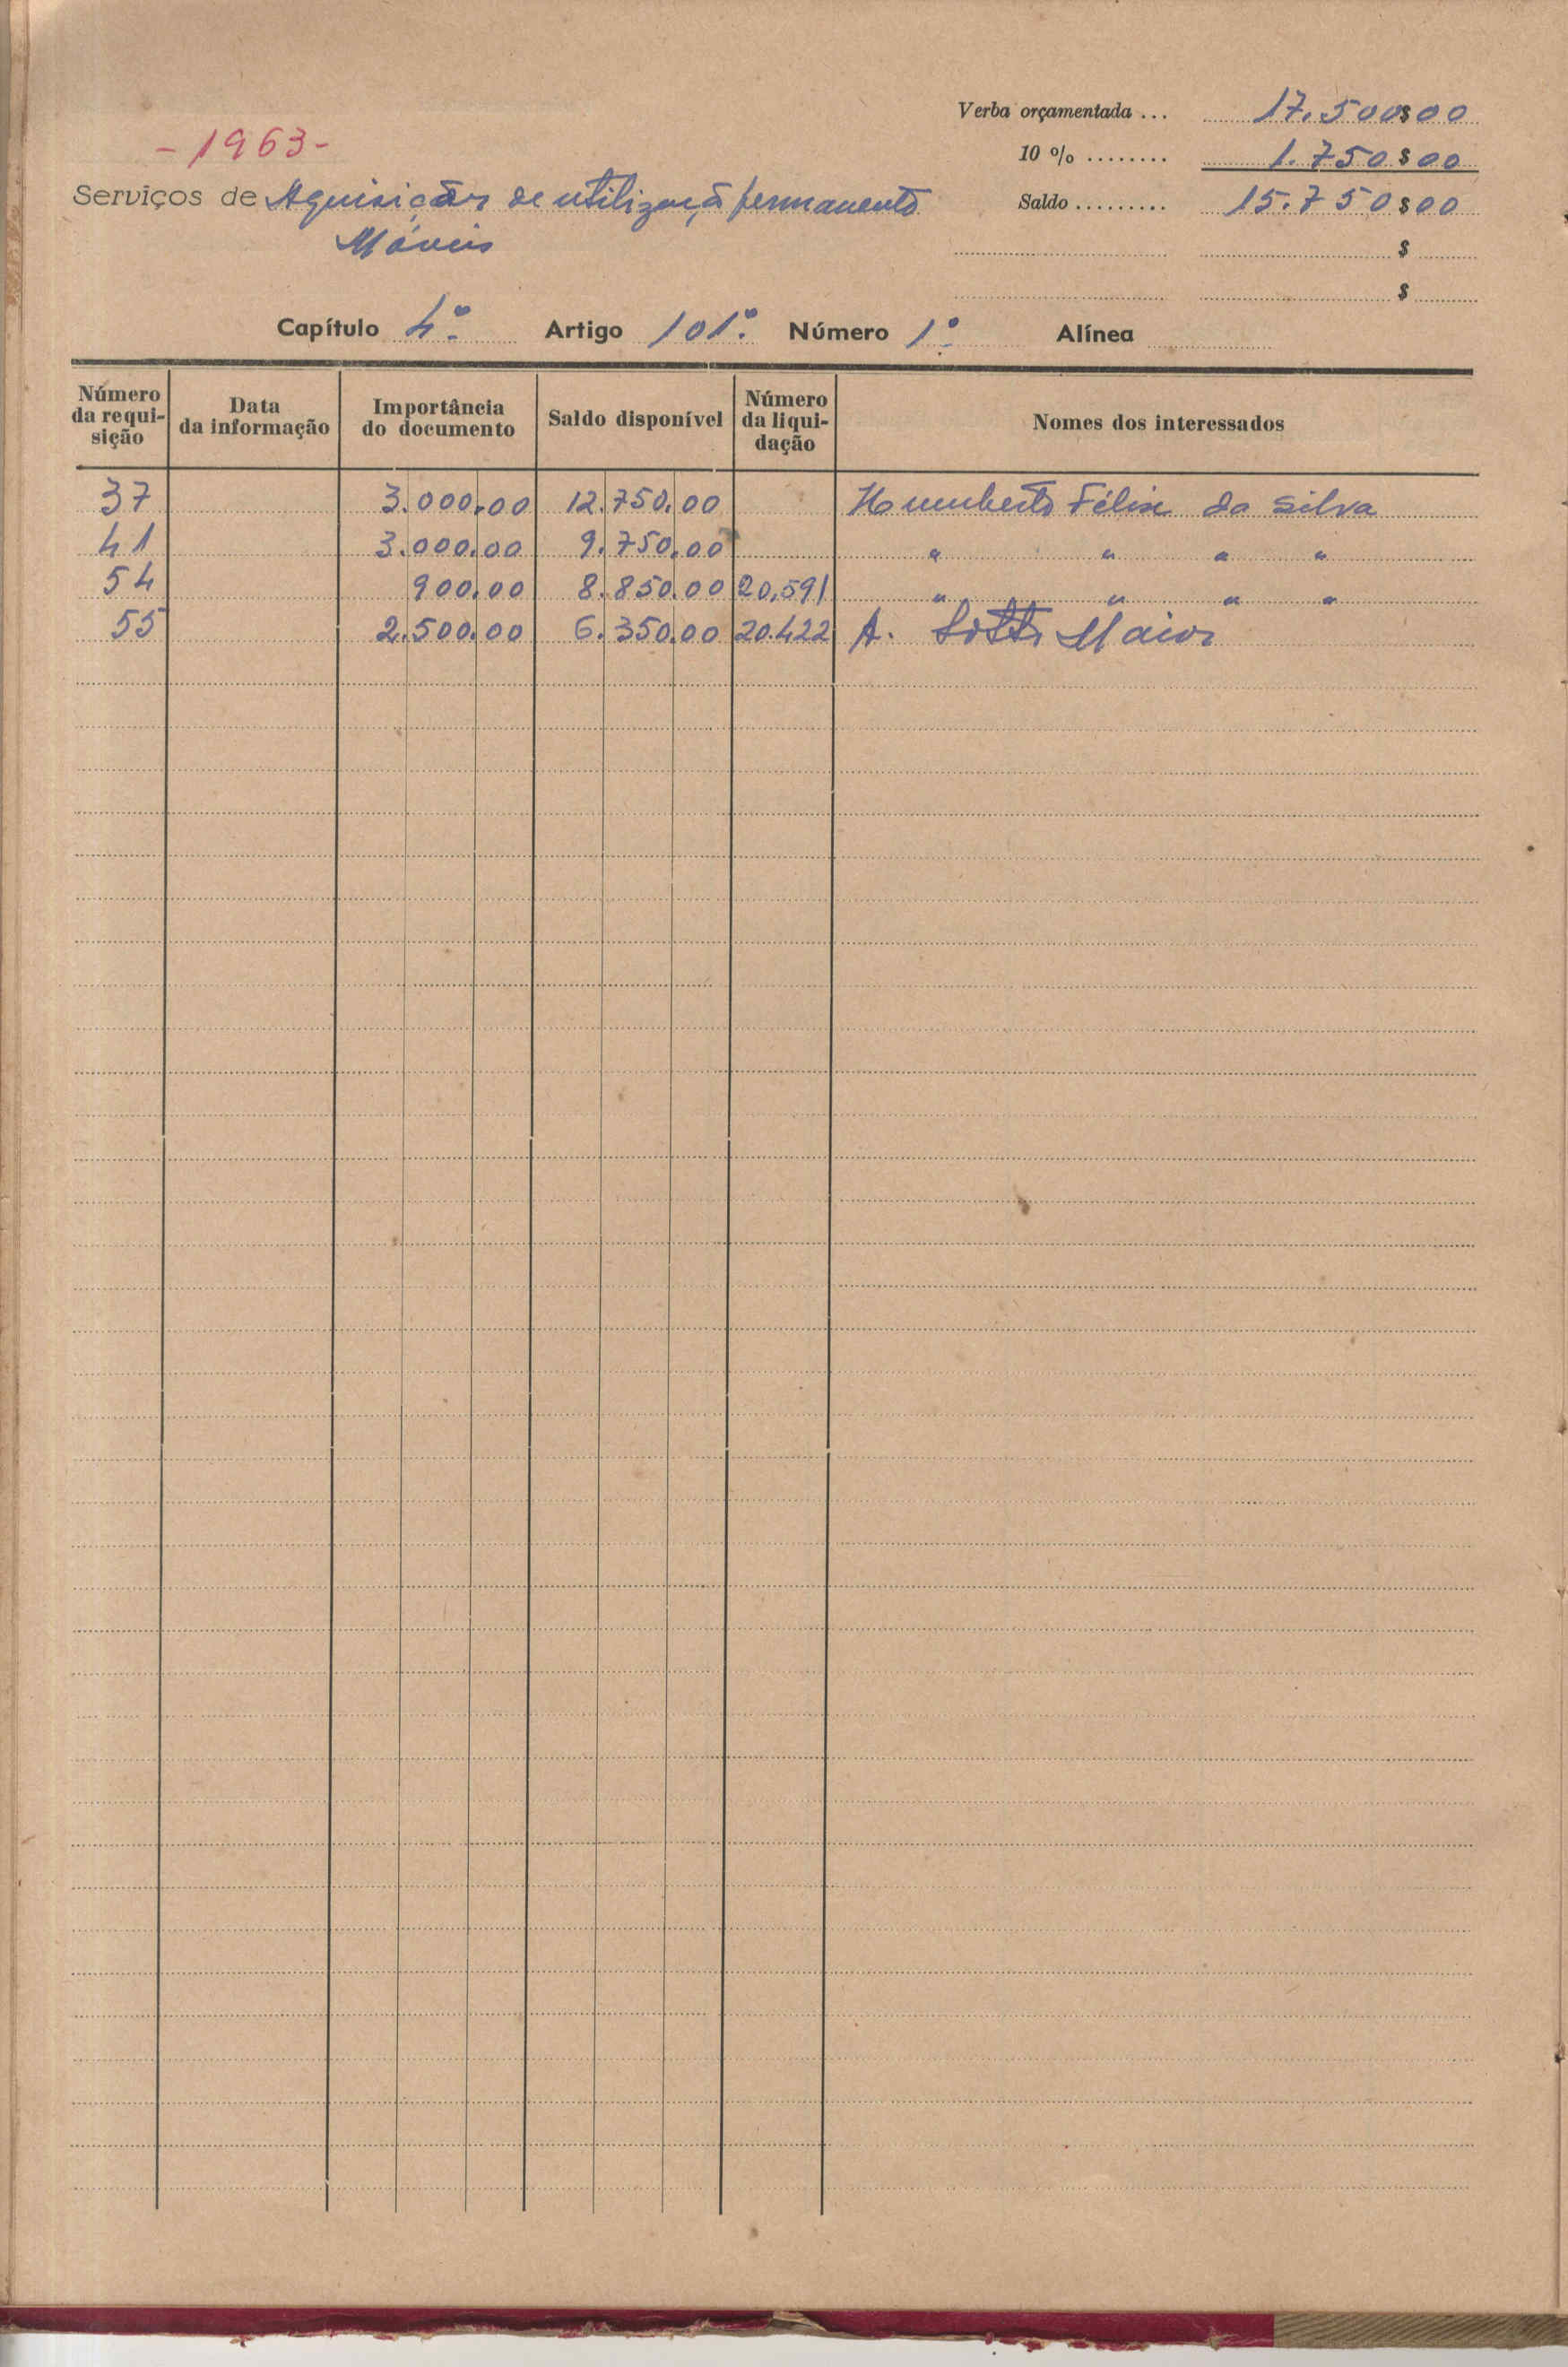 Verba orçamentada ... 17.500$00
- 1963 -
10 % ........ 1.750$00
Serviços de Aquisições de utilização permanente
Saldo ......... 15.750$00
Móveis
$
$
Capítulo 4º. Artigo 101º. Número 1º Alínea
Número da requi-sição Data da informação Importância do documento Saldo disponível Número da liqui-dação Nomes dos interessados
37 3.000.00 12.750.00 Humberto Félix da Silva
41 3.000.00 9.750.00 " " " "
54 900.00 8.850.00 20.591 " " " "
55 2.500.00 6.350.00 20.422 A. Sotto Maior